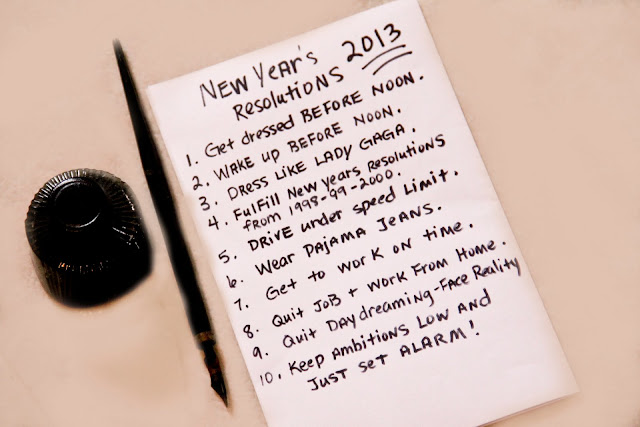 New Year's 2013
Resolutions
1. Get dressed BEFORE NOON.
2. WAKE up BEFORE NOON.
3. DRESS LIKE LADY GAGA.
4. FulFill New years Resolutions
from 1998-99-2000.
5. DRIVE under speed Limit.
6. Wear Pajama Jeans.
7. Get to work on time.
8. Quit JoB + work From Home.
9. Quit DAydreaming-Face Reality
10. Keep Ambitions Low AND
JUST Set ALARM!